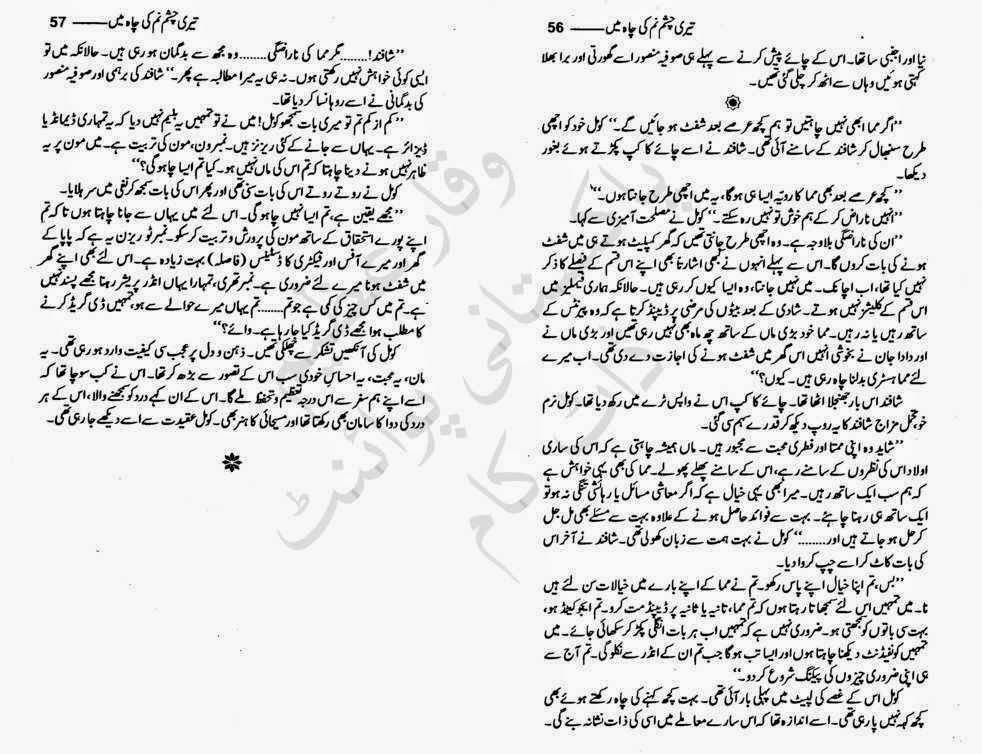 تیری چشم نم کی چاہ میں ——— 56
نیا اور اجنبی سا تھا۔ اس کے چائے پیش کرنے سے پہلے ہی صوفیہ منصور اسے گھورتی اور برا بھلا
کہتی ہوئیں وہاں سے اٹھ کر چلی گئی تھیں۔
”اگر مما ابھی نہیں چاہتیں تو ہم کچھ عرصے بعد شفٹ ہو جائیں گے۔“ کومل خود کو اچھی
طرح سنبھال کر شافند کے سامنے آئی تھی۔ شافند نے اسے چائے کا کپ پکڑتے ہوئے بغور
دیکھا۔
”کچھ عرصے بعد بھی مما کا رویہ ایسا ہی ہو گا، یہ میں اچھی طرح جانتا ہوں۔“
”انہیں ناراض کر کے ہم خوش تو نہیں رہ سکتے۔“ کومل نے مصلحت آمیزی سے کہا۔
”ان کی ناراضگی بلاوجہ ہے۔ وہ اچھی طرح جانتی تھیں کہ گھر کمپلیٹ ہوتے ہی میں شفٹ
ہونے کی بات کروں گا۔ اس سے پہلے انہوں نے کبھی اشارتاً بھی اپنے اس قسم کے فیصلے کا ذکر
نہیں کیا تھا، اب اچانک۔ میں نہیں جانتا، وہ ایسا کیوں کر رہی ہیں۔ حالانکہ ہماری فیملیز میں
اس قسم کے کلیشز نہیں ہوتے۔ شادی کے بعد بیٹوں کی مرضی پر ڈیپنڈ کرتا ہے کہ وہ پیرنٹس کے
ساتھ رہیں یا نہ رہیں۔ مما خود بڑی ماں کے ساتھ چھ ماہ بھی نہیں رہی تھیں اور بڑی ماں نے
اور دادا جان نے بخوشی انہیں اس گھر میں شفٹ ہونے کی اجازت دے دی تھی۔ اب میرے
لئے مما ہسٹری بدلنا چاہ رہی ہیں۔ کیوں؟“
شافند اس بار جھنجلا اٹھا تھا۔ چائے کا کپ اس نے واپس ٹرے میں رکھ دیا تھا۔ کومل نرم
خو، تحمل مزاج شافند کا یہ روپ دیکھ کر قدرے سہم سی گئی۔
”شاید وہ اپنی ممتا اور فطری محبت سے مجبور ہیں۔ ماں ہمیشہ چاہتی ہے کہ اس کی ساری
اولاد اس کی نظروں کے سامنے رہے، اس کے سامنے پھلے پھولے۔ مما کی بھی یہی خواہش ہے
کہ ہم سب ایک ساتھ رہیں۔ میرا بھی یہی خیال ہے کہ اگر معاشی مسائل یا رہائشی تنگی نہ ہو تو
ایک ساتھ ہی رہنا چاہئے۔ بہت سے فوائد حاصل ہونے کے علاوہ بہت سے مسئلے بھی مل جل
کر حل ہو جاتے ہیں اور........“ کومل نے بہت ہمت سے زبان کھولی تھی۔ شافند نے آخر اس
کی بات کاٹ کر اسے چپ کروا دیا۔
”بس، تم اپنا خیال اپنے پاس رکھو۔ تم نے مما کے اپنے بارے میں خیالات سن لئے ہیں
نا۔ میں تمہیں اس لئے سمجھاتا رہتا ہوں کہ تم مما، تانیہ یا ثانیہ پر ڈیپنڈ مت کرو۔ تم ایجوکیٹڈ ہو،
بہت سی باتوں کو سمجھتی ہو۔ ضروری نہیں ہے کہ تمہیں اب ہر بات انگلی پکڑ کر سکھائی جائے۔ میں
تمہیں کونفیڈنٹ دیکھنا چاہتا ہوں اور ایسا تب ہو گا جب تم ان کے انڈر سے نکلو گی۔ تم آج سے
ہی اپنی ضروری چیزوں کی پیکنگ شروع کر دو۔“
کومل اس کے غصے کی لپیٹ میں پہلی بار آئی تھی۔ بہت کچھ کہنے کی چاہ رکھتے ہوئے بھی
کچھ کہہ نہیں پا رہی تھی۔ اسے اندازہ تھا کہ اس سارے معاملے میں اسی کی ذات نشانہ بنے گی۔
تیری چشم نم کی چاہ میں ——— 57
”شافند!........ مگر مما کی ناراضگی........ وہ مجھ سے بدگمان ہو رہی ہیں۔ حالانکہ میں تو
ایسی کوئی خواہش نہیں رکھتی ہوں۔ نہ ہی یہ میرا مطالبہ ہے پھر۔“ شافند کی برہمی اور صوفیہ منصور
کی بدگمانی نے اسے روہانسا کر دیا تھا۔
”کم از کم تم تو میری بات سمجھو کومل! میں نے تو تمہیں یہ بلیم نہیں دیا کہ یہ تمہاری ڈیمانڈ یا
ڈیزائر ہے۔ یہاں سے جانے کے کئی ریزنز ہیں۔ نمبر ون، مون کی تربیت ہے۔ میں مون پر یہ
ظاہر نہیں ہونے دینا چاہتا کہ تم اس کی ماں نہیں ہو۔ کیا تم ایسا چاہو گی؟“
کومل نے روتے روتے اس کی بات سنی تھی اور پھر اس کی بات سمجھ کر نفی میں سر ہلایا۔
”مجھے یقین ہے، تم ایسا نہیں چاہو گی۔ اس لئے میں یہاں سے جانا چاہتا ہوں تاکہ تم
اپنے پورے استحقاق کے ساتھ مون کی پرورش و تربیت کر سکو۔ نمبر ٹو ریزن یہ ہے کہ پاپا کے
گھر اور میرے آفس اور فیکٹری کا ڈسٹینس (فاصلہ) بہت زیادہ ہے۔ اس لئے بھی اپنے گھر
میں شفٹ ہونا میرے لئے ضروری ہے۔ نمبر تھری، تمہارا یہاں انڈر پریشر رہنا مجھے پسند نہیں
ہے۔ تم میں کس چیز کی کمی ہے جو تم........ تم یہاں میرے حوالے سے ہو، تمہیں ڈی گریڈ کرنے
کا مطلب ہوا مجھے ڈی گریڈ کیا جا رہا ہے۔ وائے؟“
کومل کی آنکھیں تشکر سے چھلکی تھیں۔ ذہن و دل پر عجب سی کیفیت وارد ہو رہی تھی۔ یہ
مان، یہ محبت، یہ احساس خودی سب اس کے تصور سے بڑھ کر تھا۔ اس نے کب سوچا تھا کہ
اسے اپنے ہم سفر سے اس درجہ تعظیم و تحفظ ملے گا۔ اس کے ان کہے درد کو سمجھنے والا، اس کے ہر
درد کی دوا کا سامان بھی رکھتا تھا اور مسیحائی کا ہنر بھی۔ کومل عقیدت سے اسے دیکھے جا رہی تھی۔
پاکستانی پوائنٹ
ڈاٹ کام